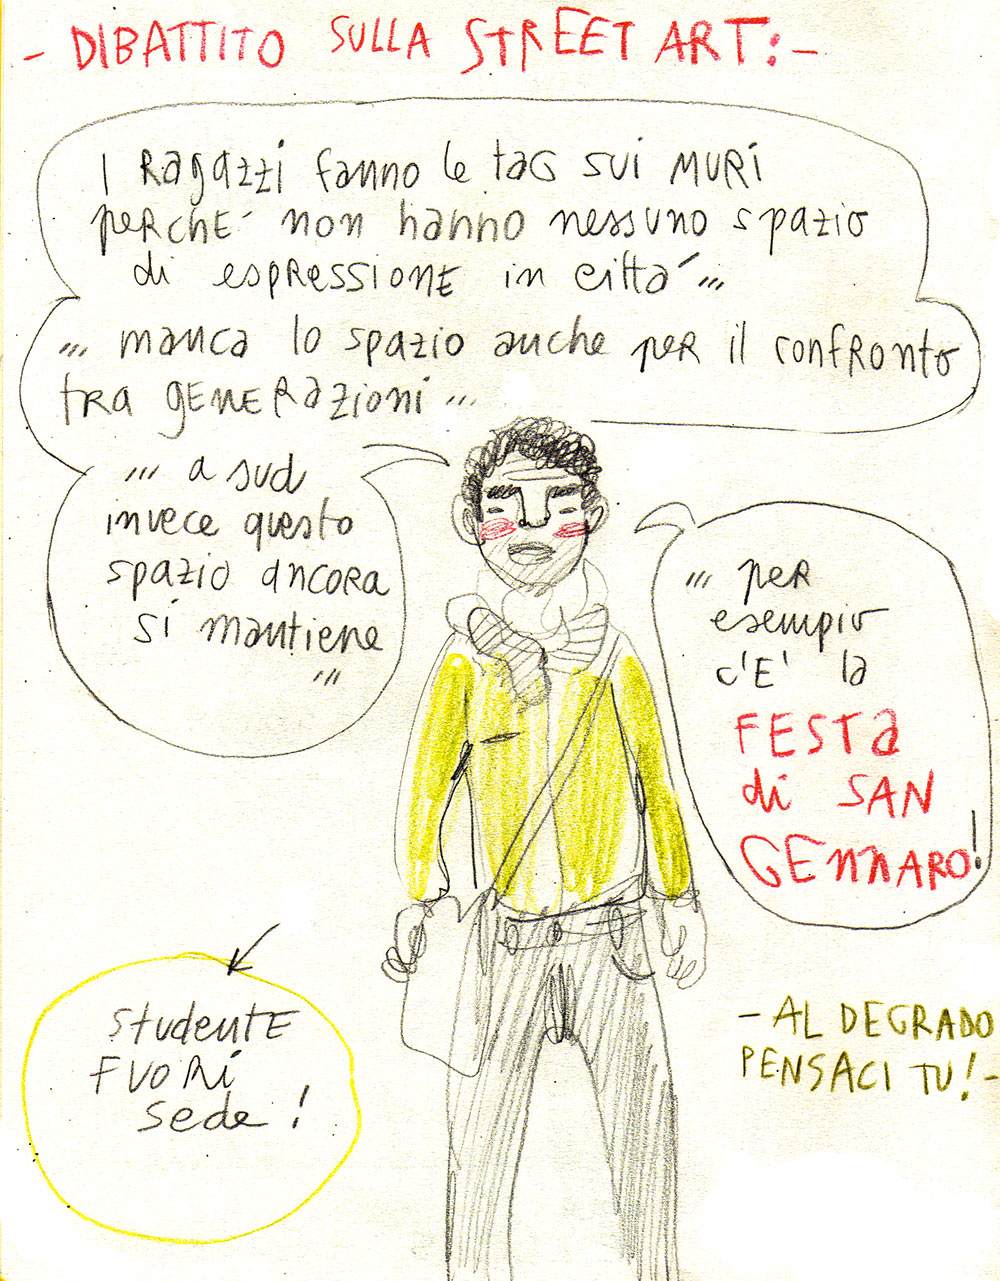 - DIBATTITO SULLA STREET ART: -
I RagazzI fanno le taG sui MURi
perCHÉ non hanno nessuno spazio
di espRessionE in città ...
... manca lo spazio anche peR il confRonto
tRa GENERazioni ...
... a sud
invece questo
spazio ancora
si mantiene
...
... peR
esempio
c'E' la
FESTa
di SAN
GENNARO!
studentE
FUORi
sede!
- AL DEGRADO
PENSACI TU! -